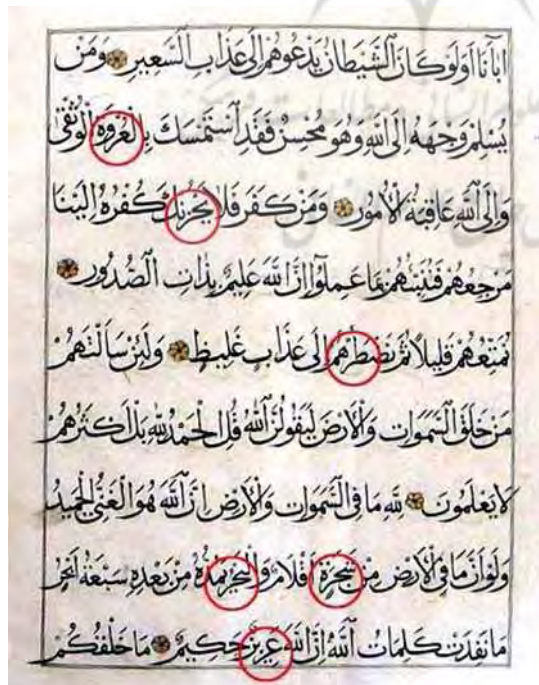 اٰبَاۤءَنَا اَوَلَوْ كَانَ الشَّيْطَانُ يَدْعُوهُمْ اِلٰى عَذَابِ السَّعِيرِ وَمَنْ
يُسْلِمْ وَجْهَهُ اِلَى اللّٰهِ وَهُوَ مُحْسِنٌ فَقَدِ اسْتَمْسَكَ بِالْعُرْوَةِ الْوُثْقٰى
وَاِلَى اللّٰهِ عَاقِبَةُ الْاُمُورِ وَمَنْ كَفَرَ فَلَا يَحْزُنْكَ كُفْرُهُ اِلَيْنَا
مَرْجِعُهُمْ فَنُنَبِّئُهُمْ بِمَا عَمِلُوا اِنَّ اللّٰهَ عَلِيمٌ بِذَاتِ الصُّدُورِ
نُمَتِّعُهُمْ قَلِيلًا ثُمَّ نَضْطَرُّهُمْ اِلٰى عَذَابٍ غَلِيظٍ وَلَئِنْ سَاَلْتَهُمْ
مَنْ خَلَقَ السَّمٰوَاتِ وَالْاَرْضَ لَيَقُولُنَّ اللّٰهُ قُلِ الْحَمْدُ لِلّٰهِ بَلْ اَكْثَرُهُمْ
لَا يَعْلَمُونَ لِلّٰهِ مَا فِي السَّمٰوَاتِ وَالْاَرْضِ اِنَّ اللّٰهَ هُوَ الْغَنِيُّ الْحَمِيدُ
وَلَوْ اَنَّ مَا فِي الْاَرْضِ مِنْ شَجَرَةٍ اَقْلَامٌ وَالْبَحْرُ يَمُدُّهُ مِنْ بَعْدِهِ سَبْعَةُ اَبْحُرٍ
مَا نَفِدَتْ كَلِمَاتُ اللّٰهِ اِنَّ اللّٰهَ عَزِيزٌ حَكِيمٌ مَا خَلْقُكُمْ